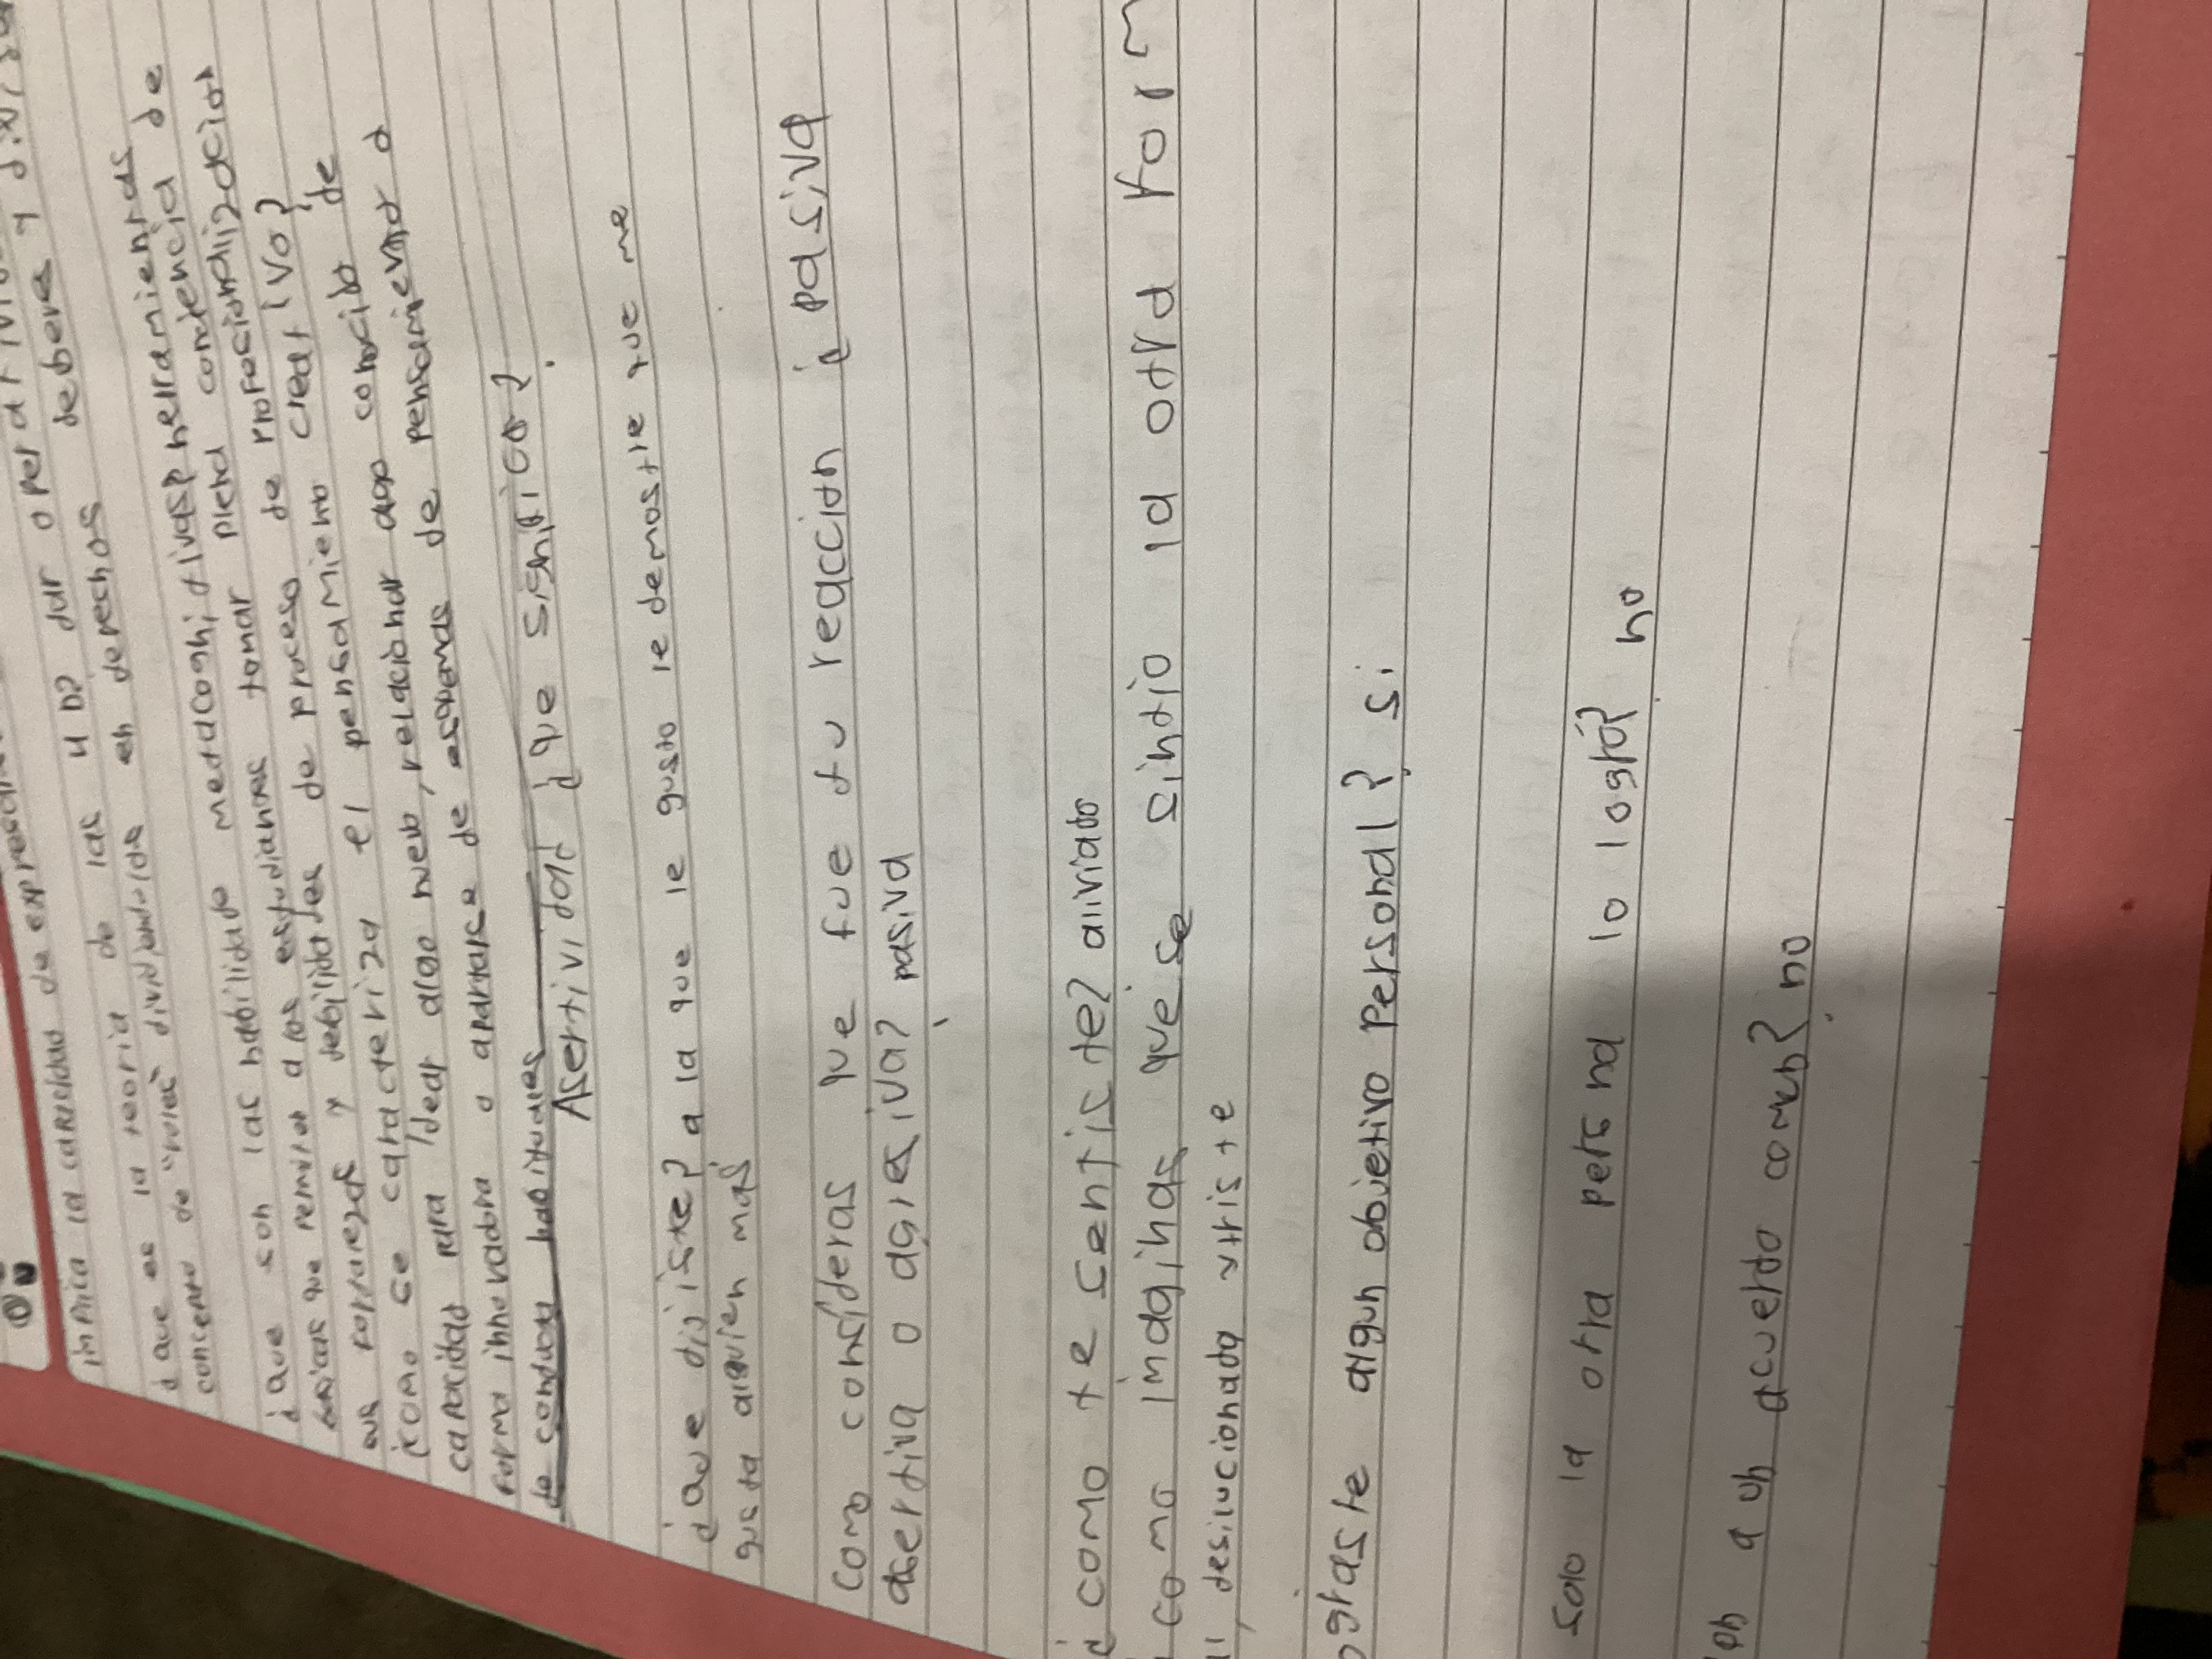 implica la capacidad de expresar
¿que es la teoria de las UD? dar o
concepto de "roles" dividiendolas en derechos deberes y
¿que son las habilidade metacognitivas? herramientas
que permiten a los estudiantes tomar plena conciencia de
sus fortalezas y debilidades de proceso de profocionalizacion
¿como se caracteriza el pensamiento creativo?
capacidad para idear algo new, relacionar algo conocido de
forma innovadora o apartarse de esquemas de pensamiento o
de conducta habituales
Asertividad ¿que significa?
¿que dijiste? a la que le gusto le demostre que me
gusta alguien mas
como consideras que fue tu reaccion ¿pasiva
asertiva o agresiva? pasiva
¿como te sentiste? aliviado
como imaginas que se sintio la otra for
desilucionada y triste
ograste algun objetivo personal? si
solo la otra persna lo logró? no
a un acuerdo comun? no